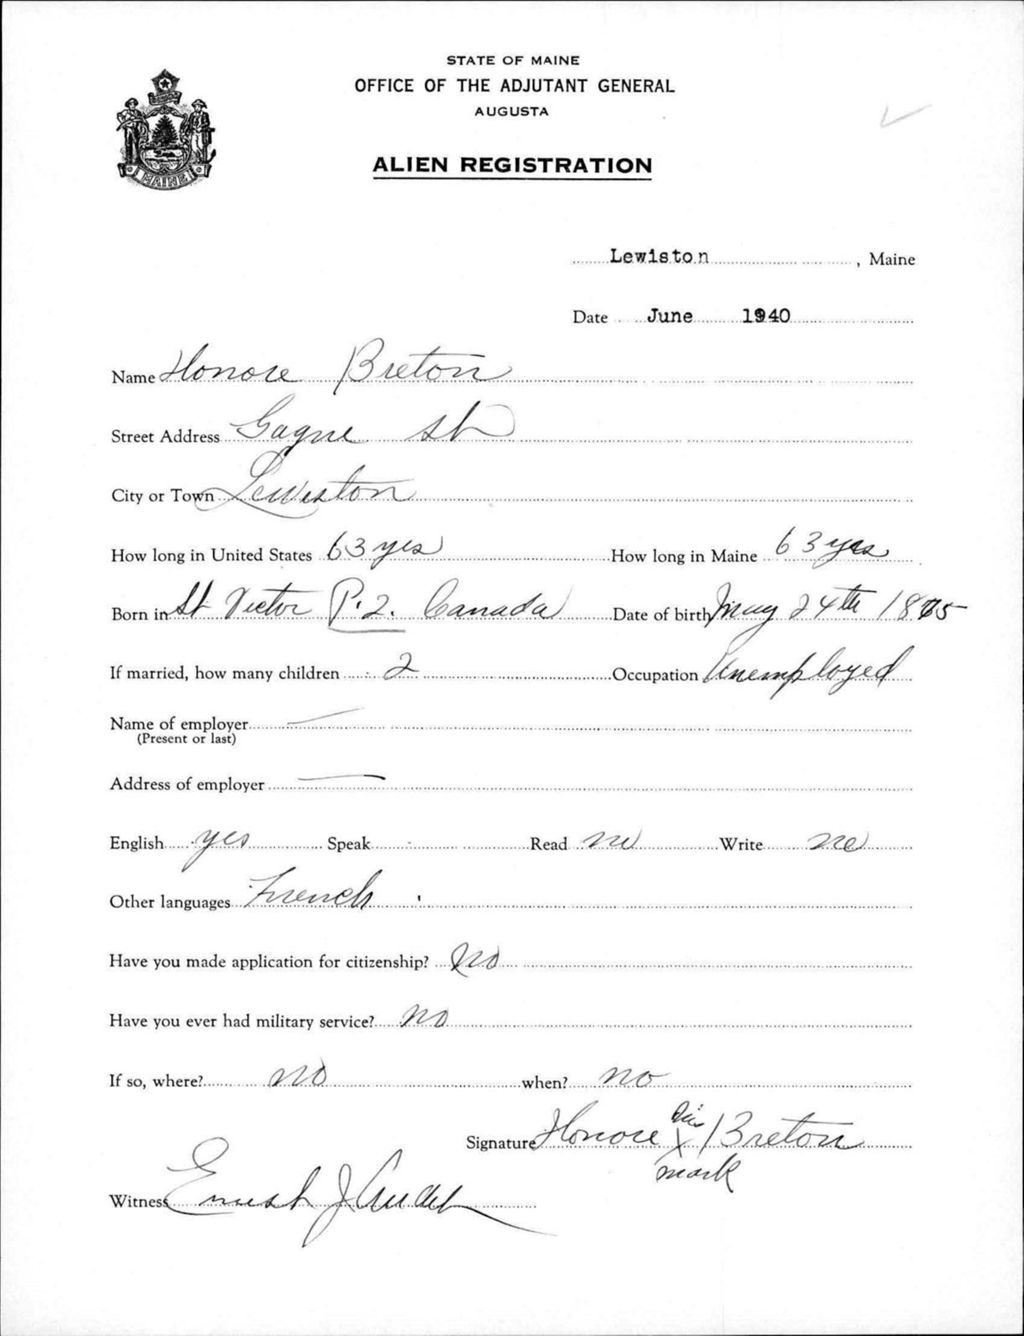 STATE OF MAINE
OFFICE OF THE ADJUTANT GENERAL
AUGUSTA
MAINE
ALIEN REGISTRATION
Lewiston, Maine
Date June 1940
Name Honore Breton
Street Address Gagne St
City or Town Lewiston
How long in United States 63 yrs How long in Maine 63 yrs
Born in St Victor P.2. Canada Date of birth May 24th 18
If married, how many children 2 Occupation Unemployed
Name of employer
(Present or last)
Address of employer
English yes Speak Read no Write no
Other languages French
Have you made application for citizenship? No
Have you ever had military service? no
If so, where? no when? no
his
Signature Honore X Breton
mark
Witness J